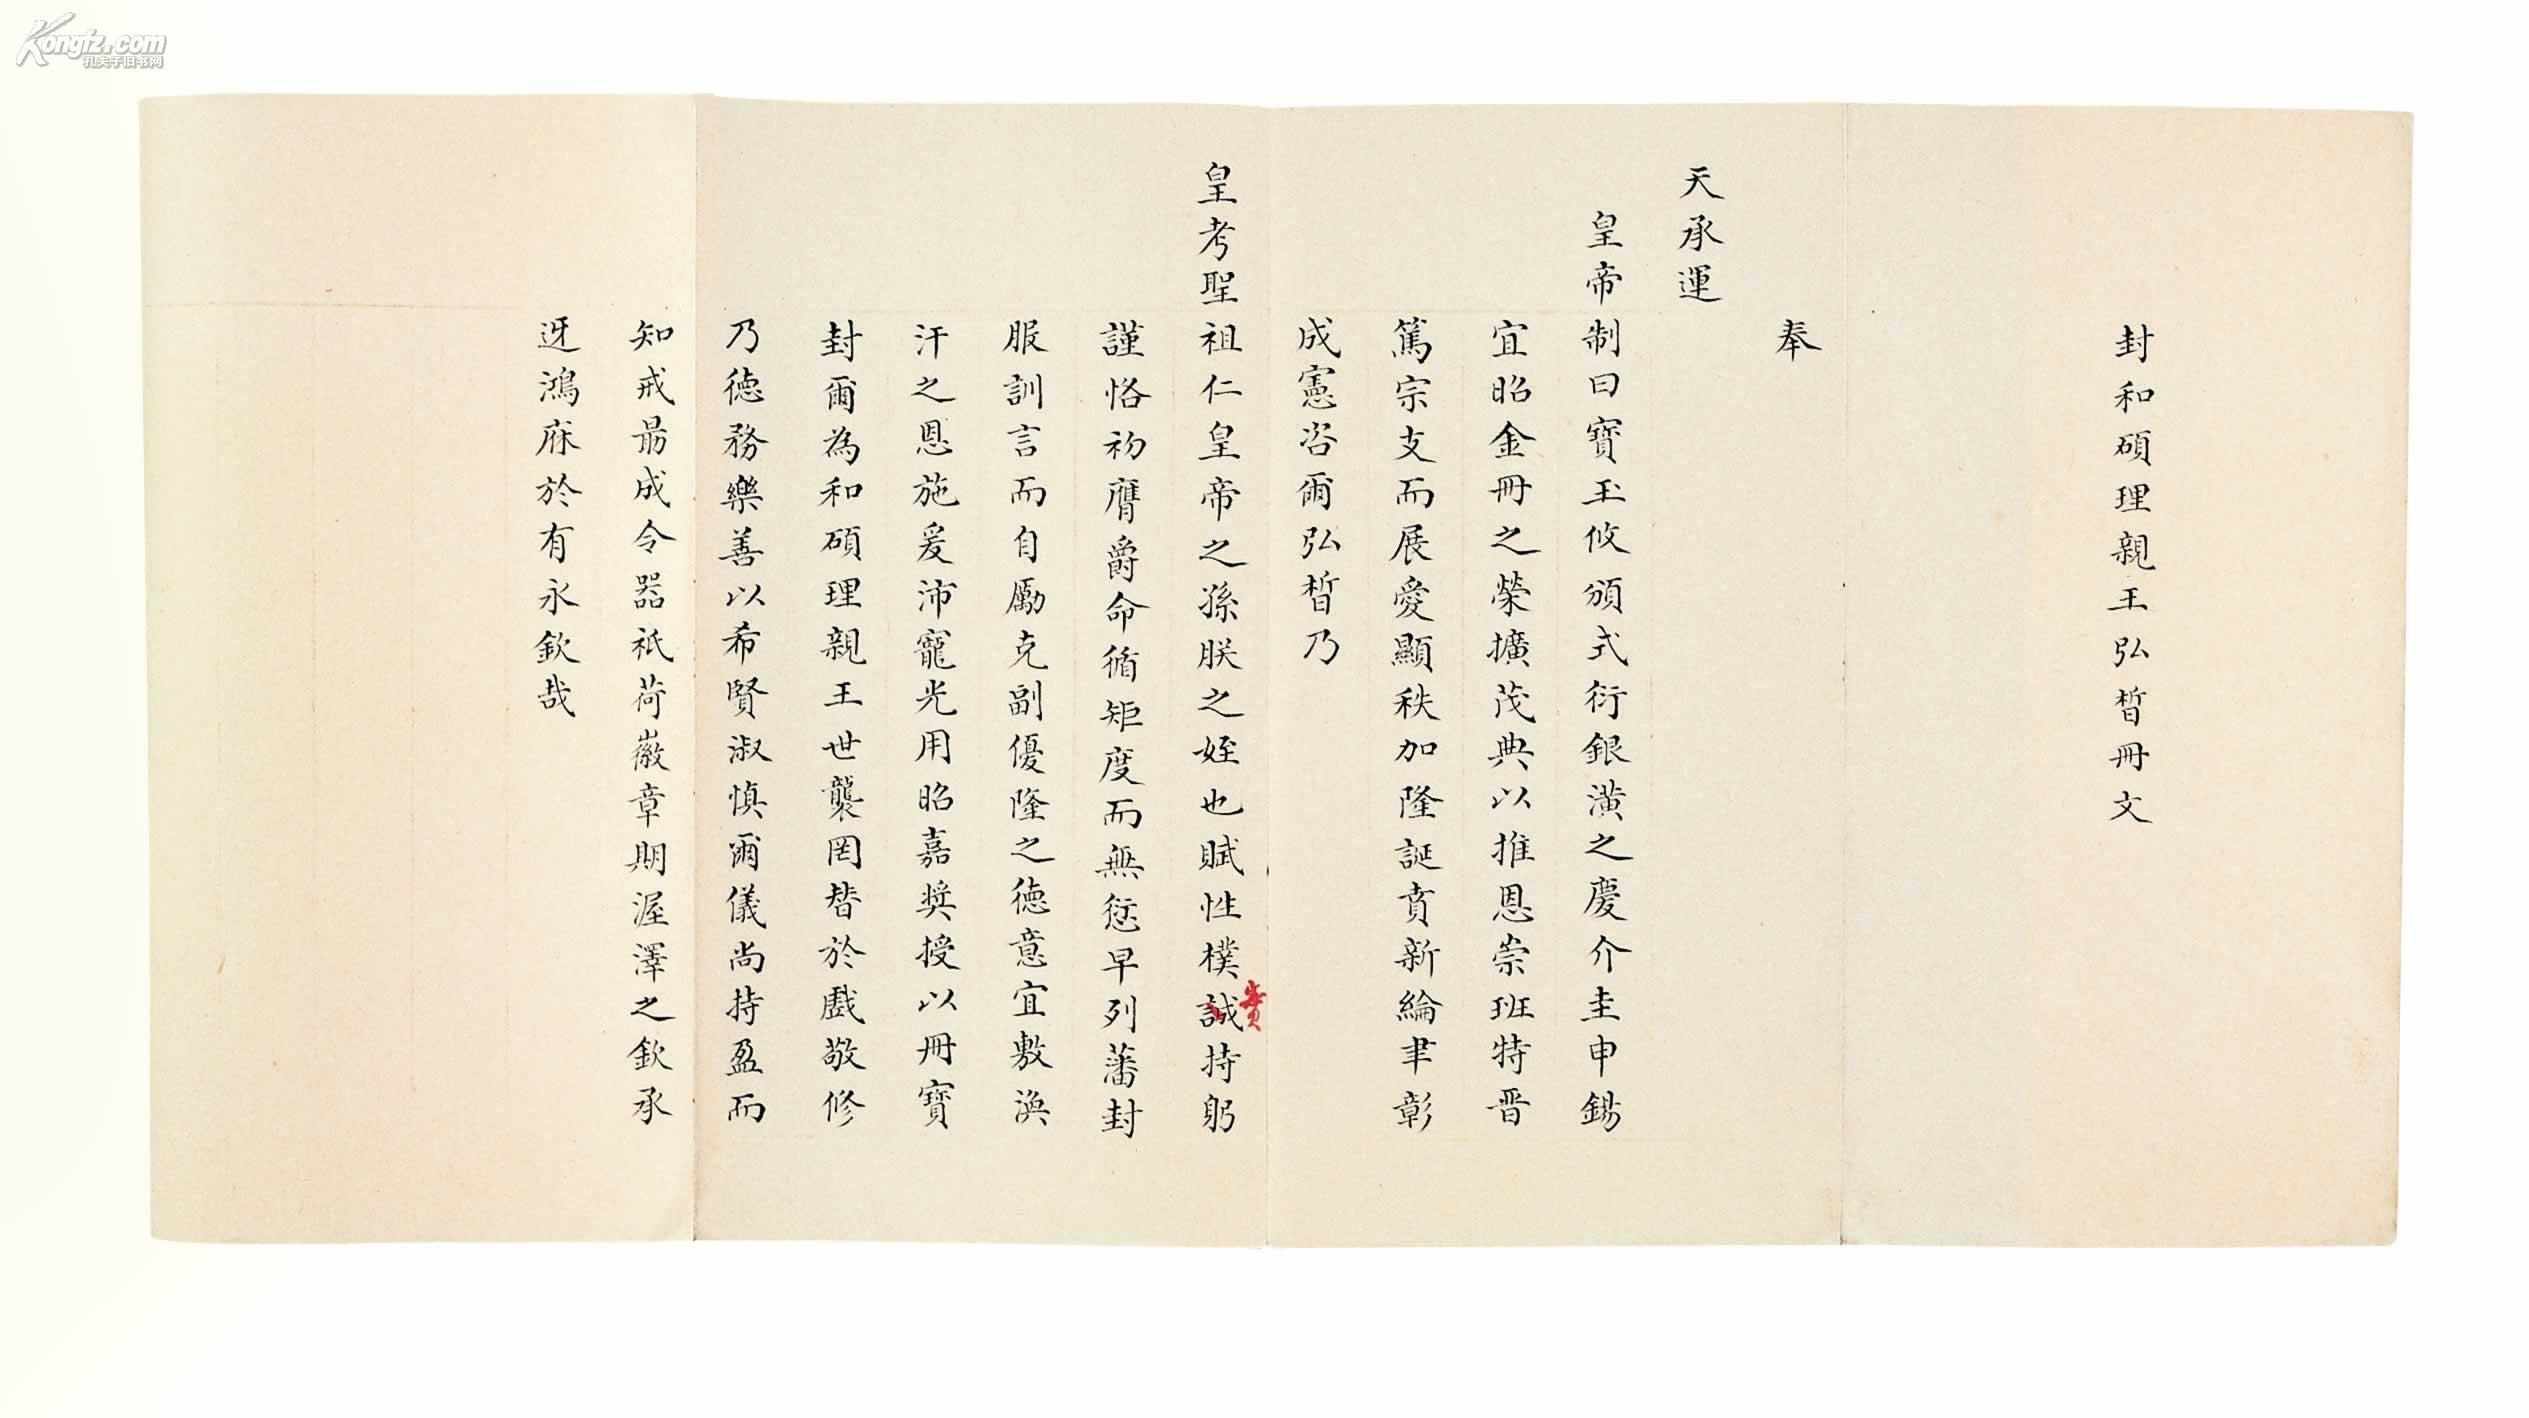 封和碩理親王弘晳冊文
奉
天承運
皇帝制曰寶玉攸頒式衍銀潢之慶介圭申錫
宜昭金冊之榮擴茂典以推恩崇班特晋
篤宗支而展愛顯秩加隆誕賁新綸聿彰
成憲咨爾弘晳乃
皇考聖祖仁皇帝之孫朕之姪也賦性樸誠持躬
實
謹恪初膺爵命循矩度而無愆早列藩封
服訓言而自勵克副優隆之德意宜敷渙
汗之恩施爰沛寵光用昭嘉奬授以冊寶
封爾為和碩理親王世襲罔替於戲敬修
乃德務樂善以希賢淑慎爾儀尚持盈而
知戒勗成令器祇荷徽章期渥澤之欽承
迓鴻庥於有永欽哉
Kongfz.com
孔夫子旧书网